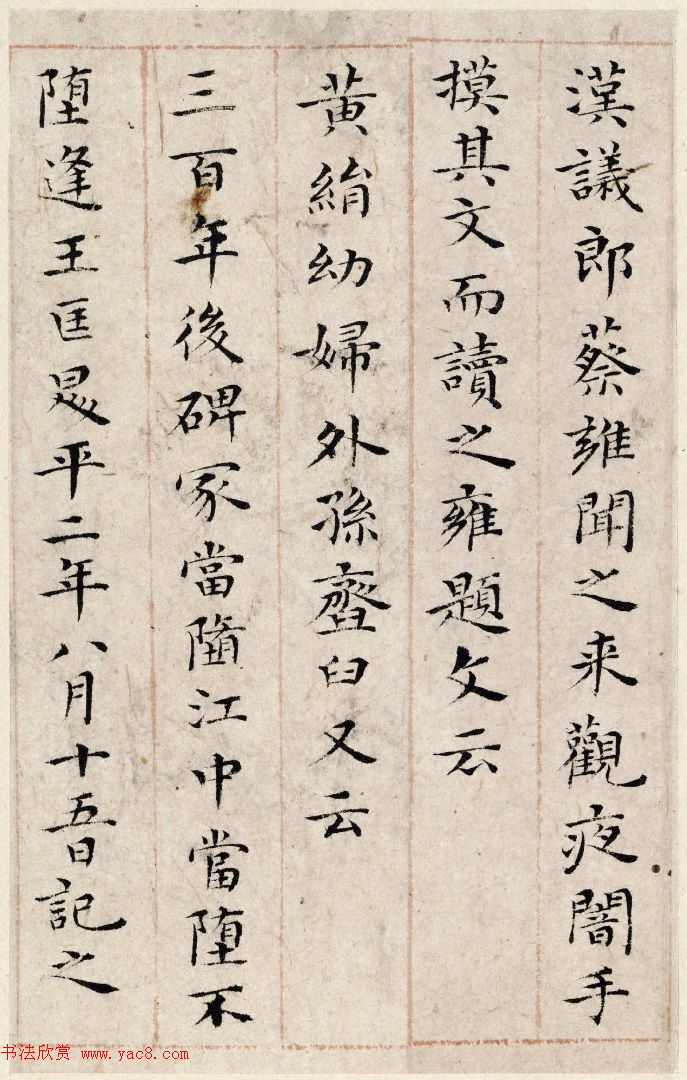 漢議郎蔡雍聞之来觀夜闇手
摸其文而讀之雍題文云
黃絹幼婦外孫齏臼又云
三百年後碑冢當墮江中當墮不
墮逢王匡昇平二年八月十五日記之
书法欣赏 www.yac8.com